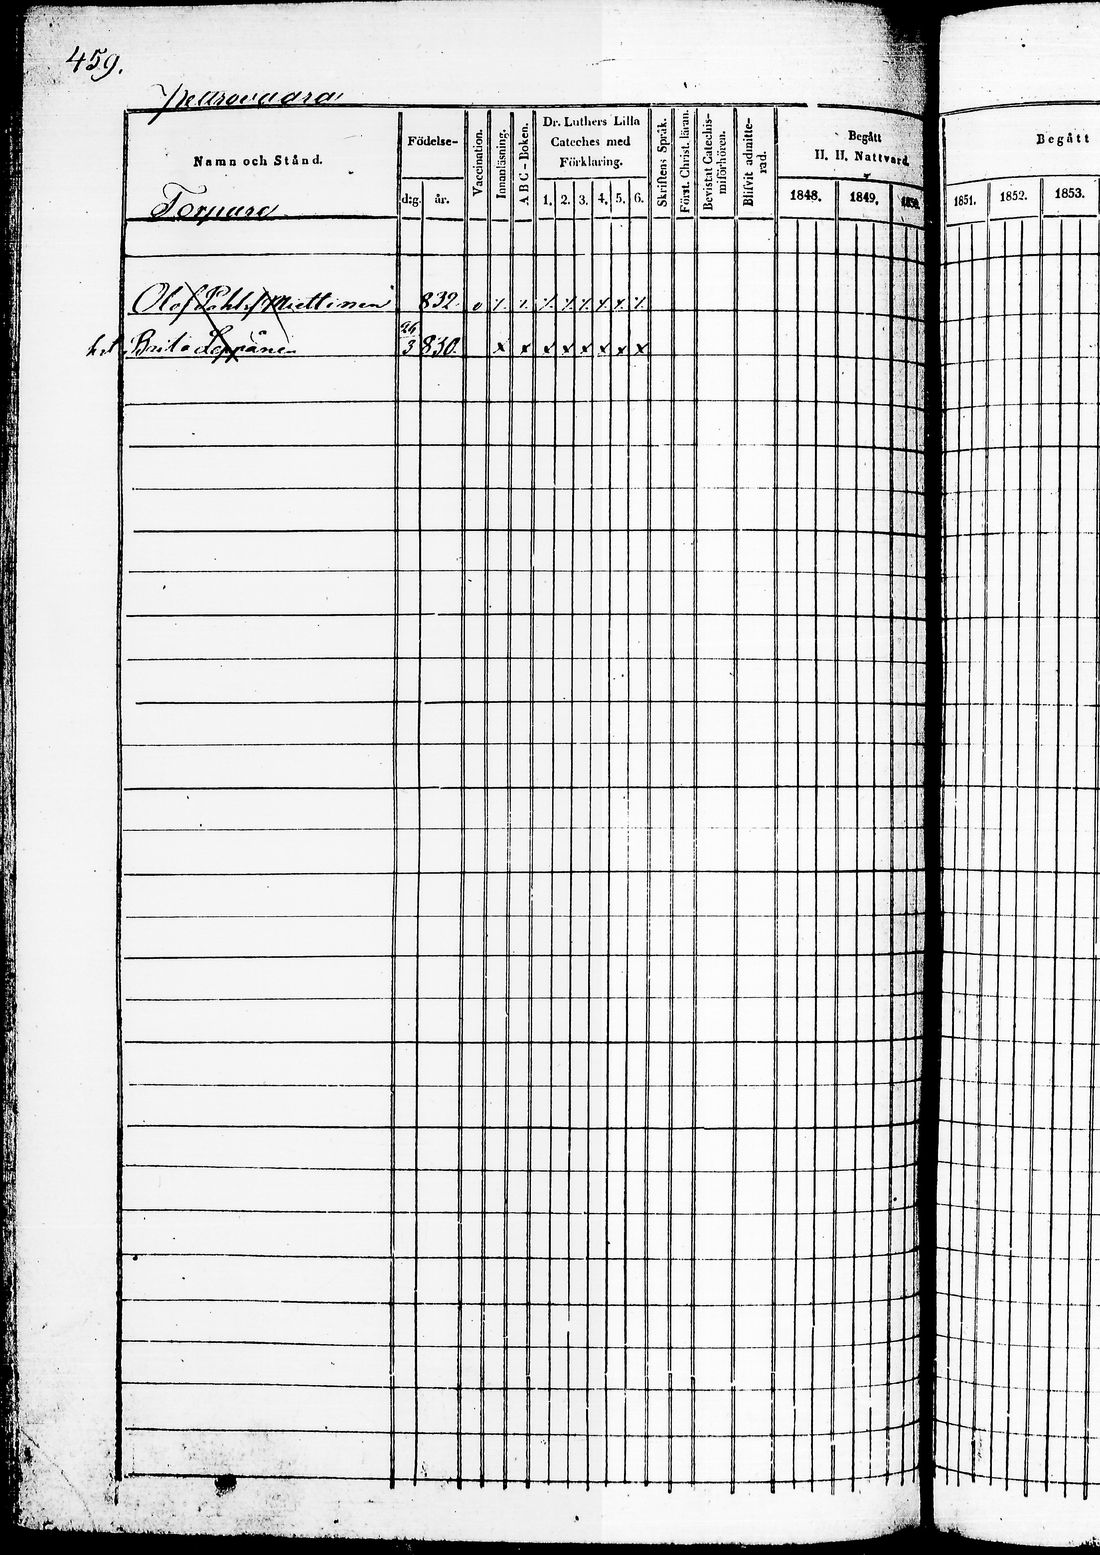 459.
Pettrovaara
Namn och Stånd.
Födelse-
Vaccination.
Innanläsning.
A B C - Boken.
Dr. Luthers Lilla
Cateches med
Förklaring.
Skriftens Språk.
Förut. Christ. läran.
Bevistat Catechis-
miförhören.
Blifvit admitte-
rad.
Begått
H. H. Nattvard.
Begått
Torpare
d:g. år. 1. 2. 3. 4. 5. 6. 1848. 1849. 1850. 1851. 1852. 1853.
Olof Miettinen 832. 0 ⁒ ⁒ ⁒ ⁒ ⁒ ⁒ ⁒ ⁒
hst Brita Leppänen 26/3 830. x x x x x x x x